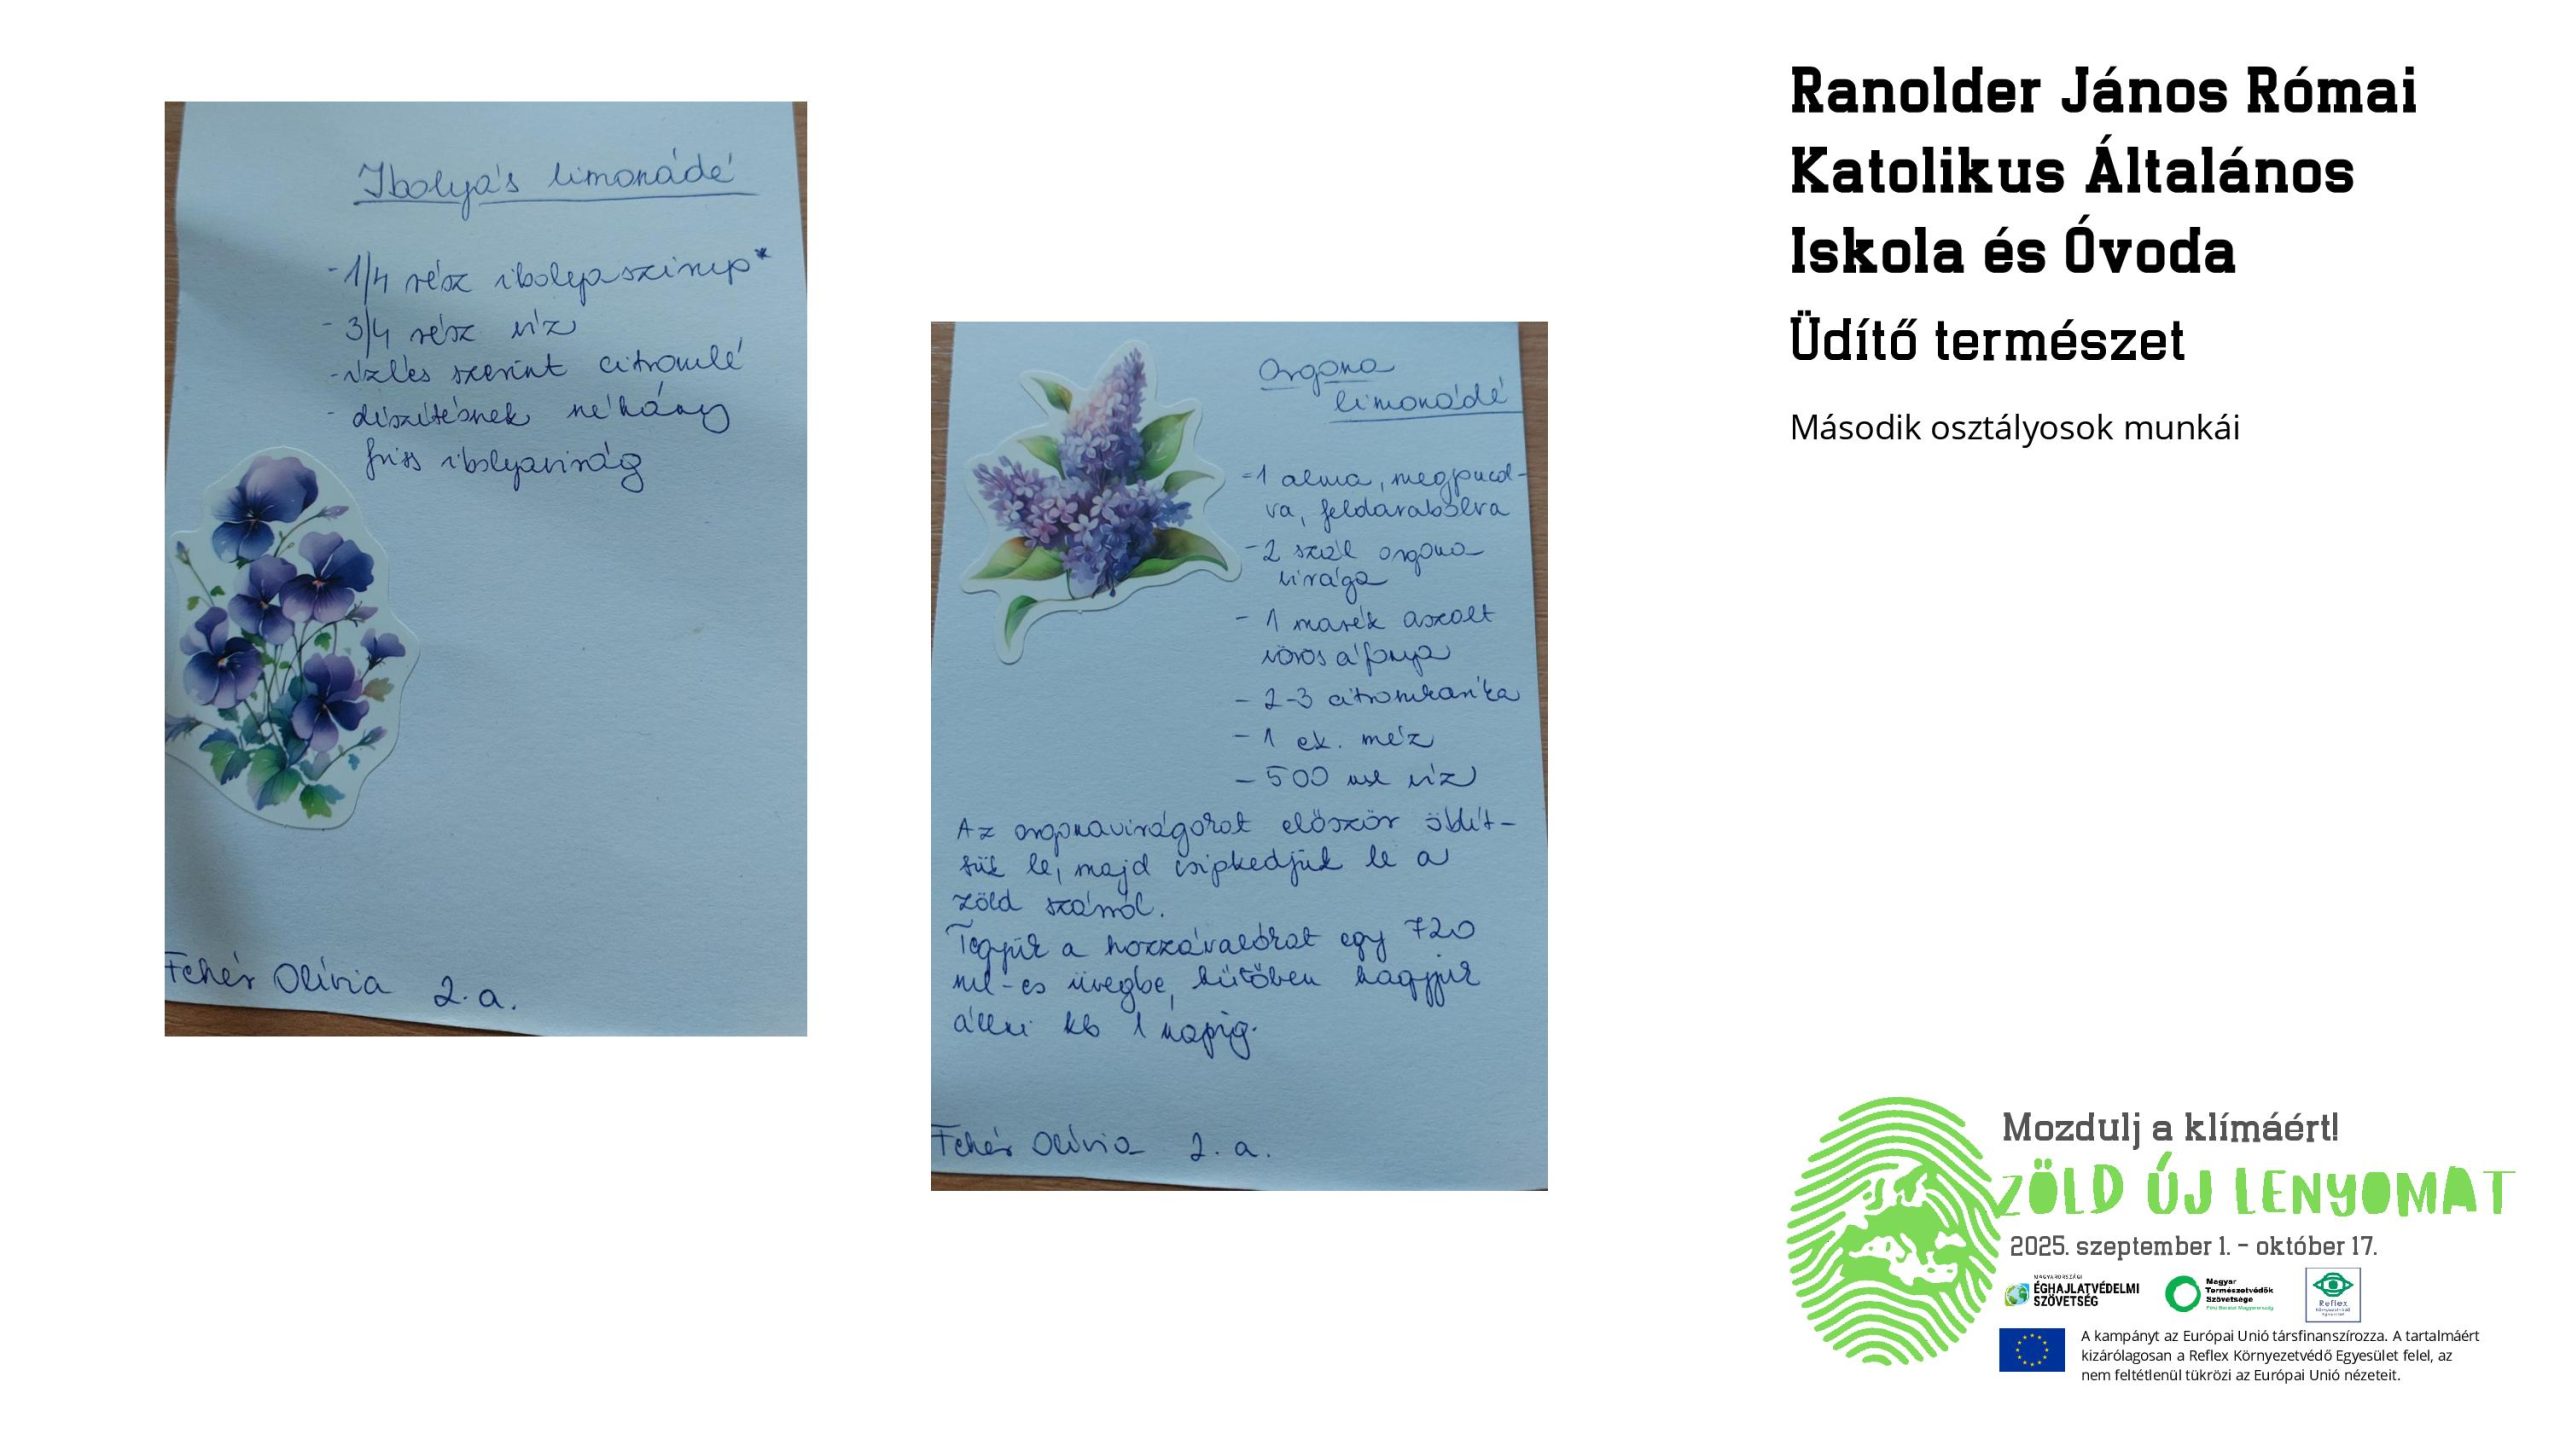 Ibolyás limonádé
- 1/4 rész ibolyaszirup*
- 3/4 rész víz
- ízlés szerint citromlé
- díszítésnek néhány
friss ibolyavirág
Fehér Olívia 2. a.
Orgona
limonádé
- 1 alma, megpucol-
va, feldarabolva
- 2 szál orgona
virága
- 1 marék aszalt
vörös áfonya
- 2-3 citromkarika
- 1 ek. méz
- 500 ml víz
Az orgonavirágokat először öblít-
sük le, majd csipkedjük le a
zöld szárról.
Tegyük a hozzávalókat egy 720
ml-es üvegbe, hűtőben hagyjuk
állni kb 1 napig.
Fehér Olívia 2. a.
Ranolder János Római
Katolikus Általános
Iskola és Óvoda
Üdítő természet
Második osztályosok munkái
Mozdulj a klímáért!
ZÖLD ÚJ LENYOMAT
2025. szeptember 1. - október 17.
MAGYARORSZÁGI
ÉGHAJLATVÉDELMI
SZÖVETSÉG
Magyar
Természetvédők
Szövetsége
Föld Barátai Magyarország
Reflex
A kampányt az Európai Unió társfinanszírozza. A tartalmáért
kizárólagosan a Reflex Környezetvédő Egyesület felel, az
nem feltétlenül tükrözi az Európai Unió nézeteit.